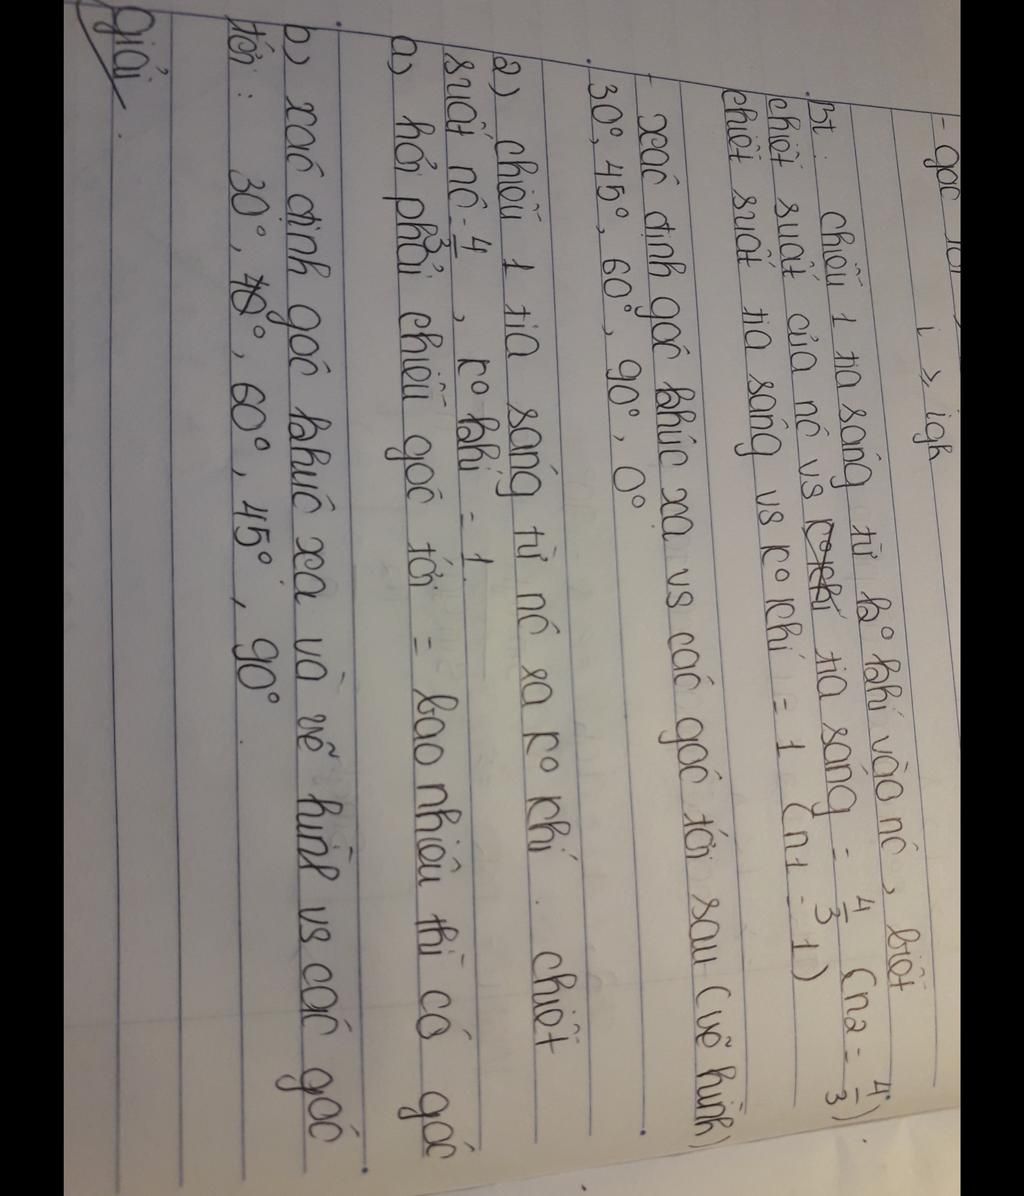 - góc tới
i ≥ igh
Bt. chiếu 1 tia sáng từ ko khí vào nc, biết
chiết suất của nc vs tia sáng = 4/3 (n2 = 4/3).
chiết suất tia sáng vs ko khí = 1 (n1 = 1)
- xác định góc khúc xạ vs các góc tới sau (vẽ hình)
30°, 45°, 60°, 90°, 0°
2) chiếu 1 tia sáng từ nc ra ko khí. chiết
suất nc = 4/3, ko khí = 1.
a) hỏi phải chiếu góc tới = bao nhiêu thì có góc
b) xác định góc khúc xạ và vẽ hình vs các góc
tới: 30°, 60°, 45°, 90°.
giải.